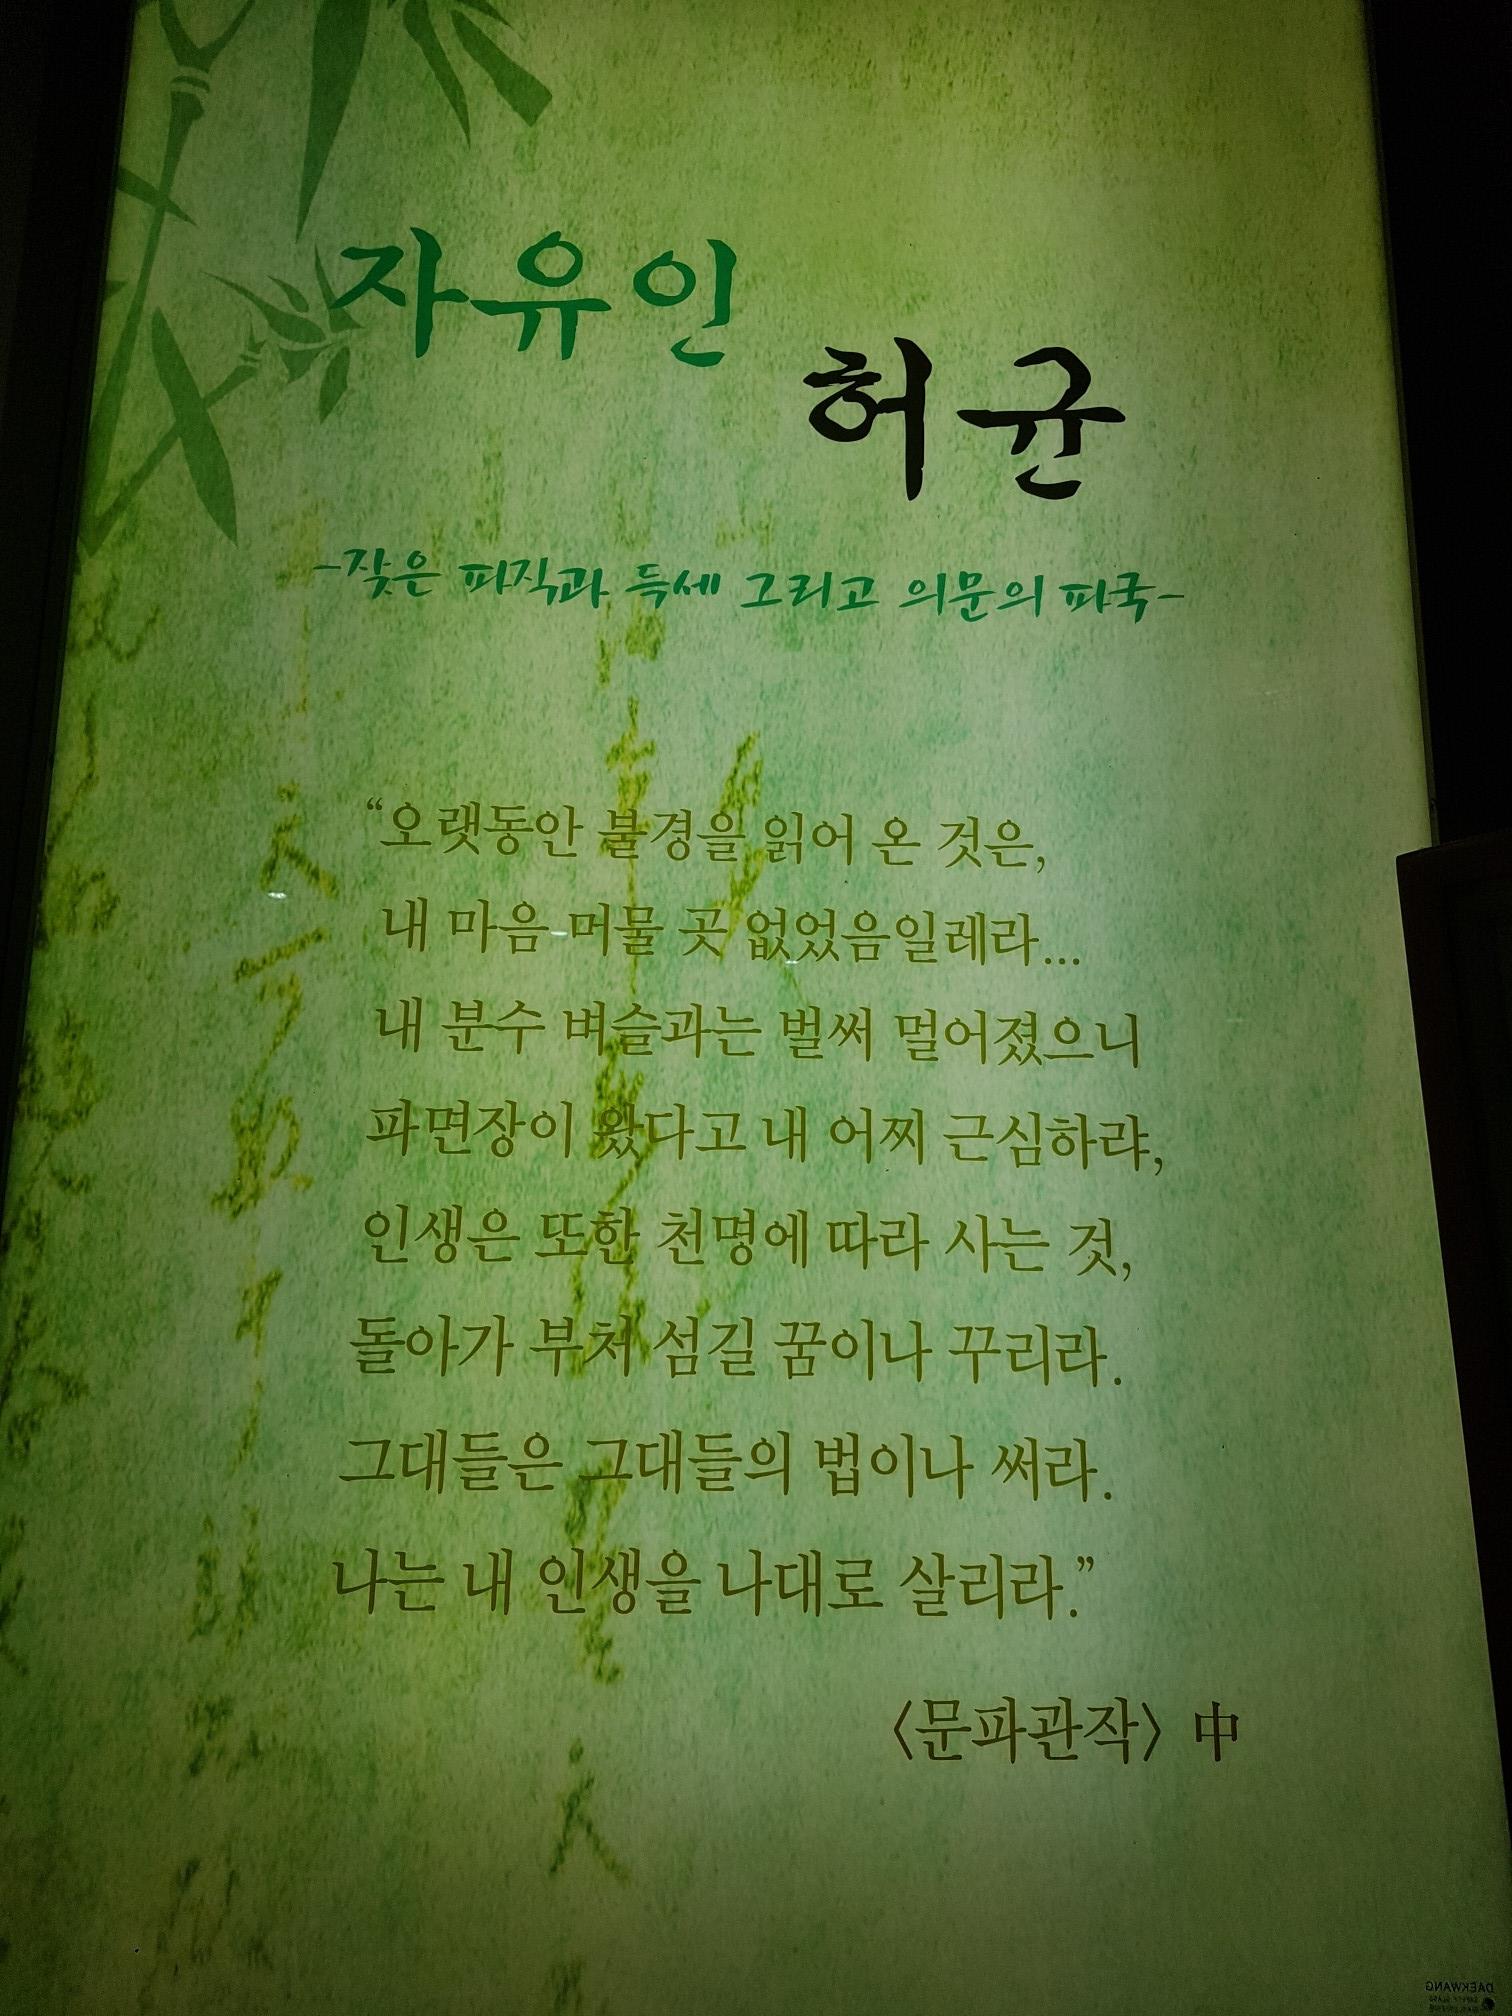 자유인
허균
-잦은 파직과 득세 그리고 의문의 파국-
“오랫동안 불경을 읽어 온 것은,
내 마음 머물 곳 없었음일레라...
내 분수 벼슬과는 벌써 멀어졌으니
파면장이 왔다고 내 어찌 근심하랴,
인생은 또한 천명에 따라 사는 것,
돌아가 부처 섬길 꿈이나 꾸리라.
그대들은 그대들의 법이나 써라.
나는 내 인생을 나대로 살리라.”
〈문파관작〉 中
DAEKWANG